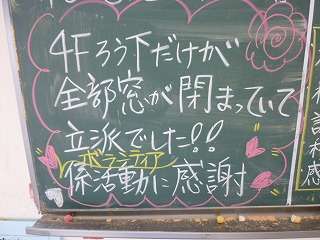 4Fろう下だけが
全部窓が閉まっていて
立派でした!!
ボランティア
係活動に感謝